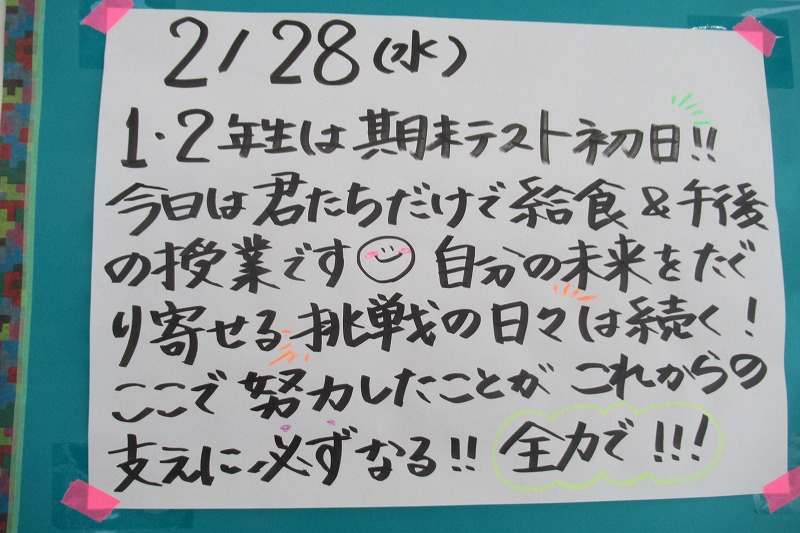 2/28(水)
1・2年生は期末テスト初日!!
今日は君たちだけで給食&午後
の授業です 自分の未来をたぐ
り寄せる挑戦の日々は続く!
ここで努力したことがこれからの
支えに必ずなる!! 全力で!!!